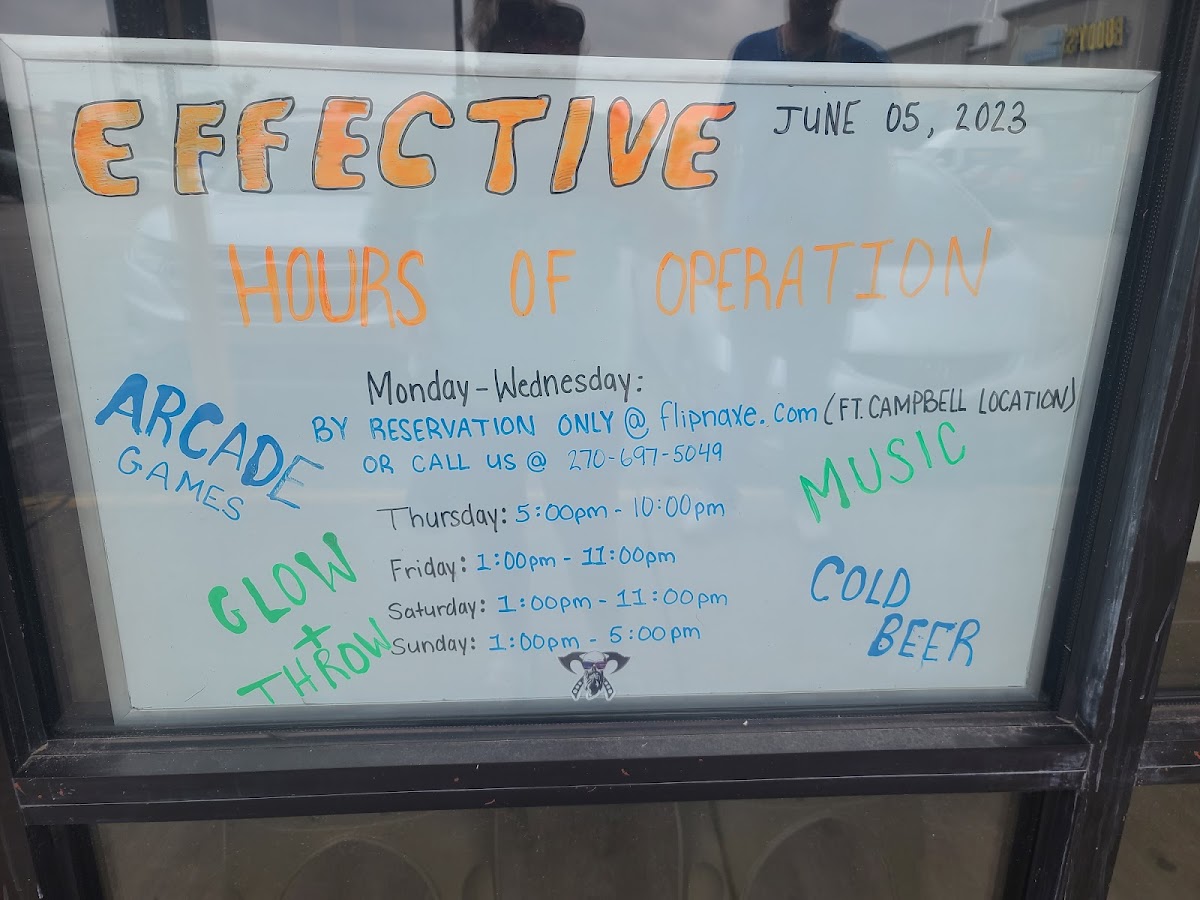 EFFECTIVE JUNE 05, 2023
HOURS OF OPERATION
Monday-Wednesday:
BY RESERVATION ONLY @ flipnaxe.com (FT. CAMPBELL LOCATION)
OR CALL US @ 270-697-5049
Thursday: 5:00pm - 10:00pm
Friday: 1:00pm - 11:00pm
Saturday: 1:00pm - 11:00pm
Sunday: 1:00pm - 5:00pm
ARCADE
GAMES
GLOW
+
THROW
MUSIC
COLD
BEER